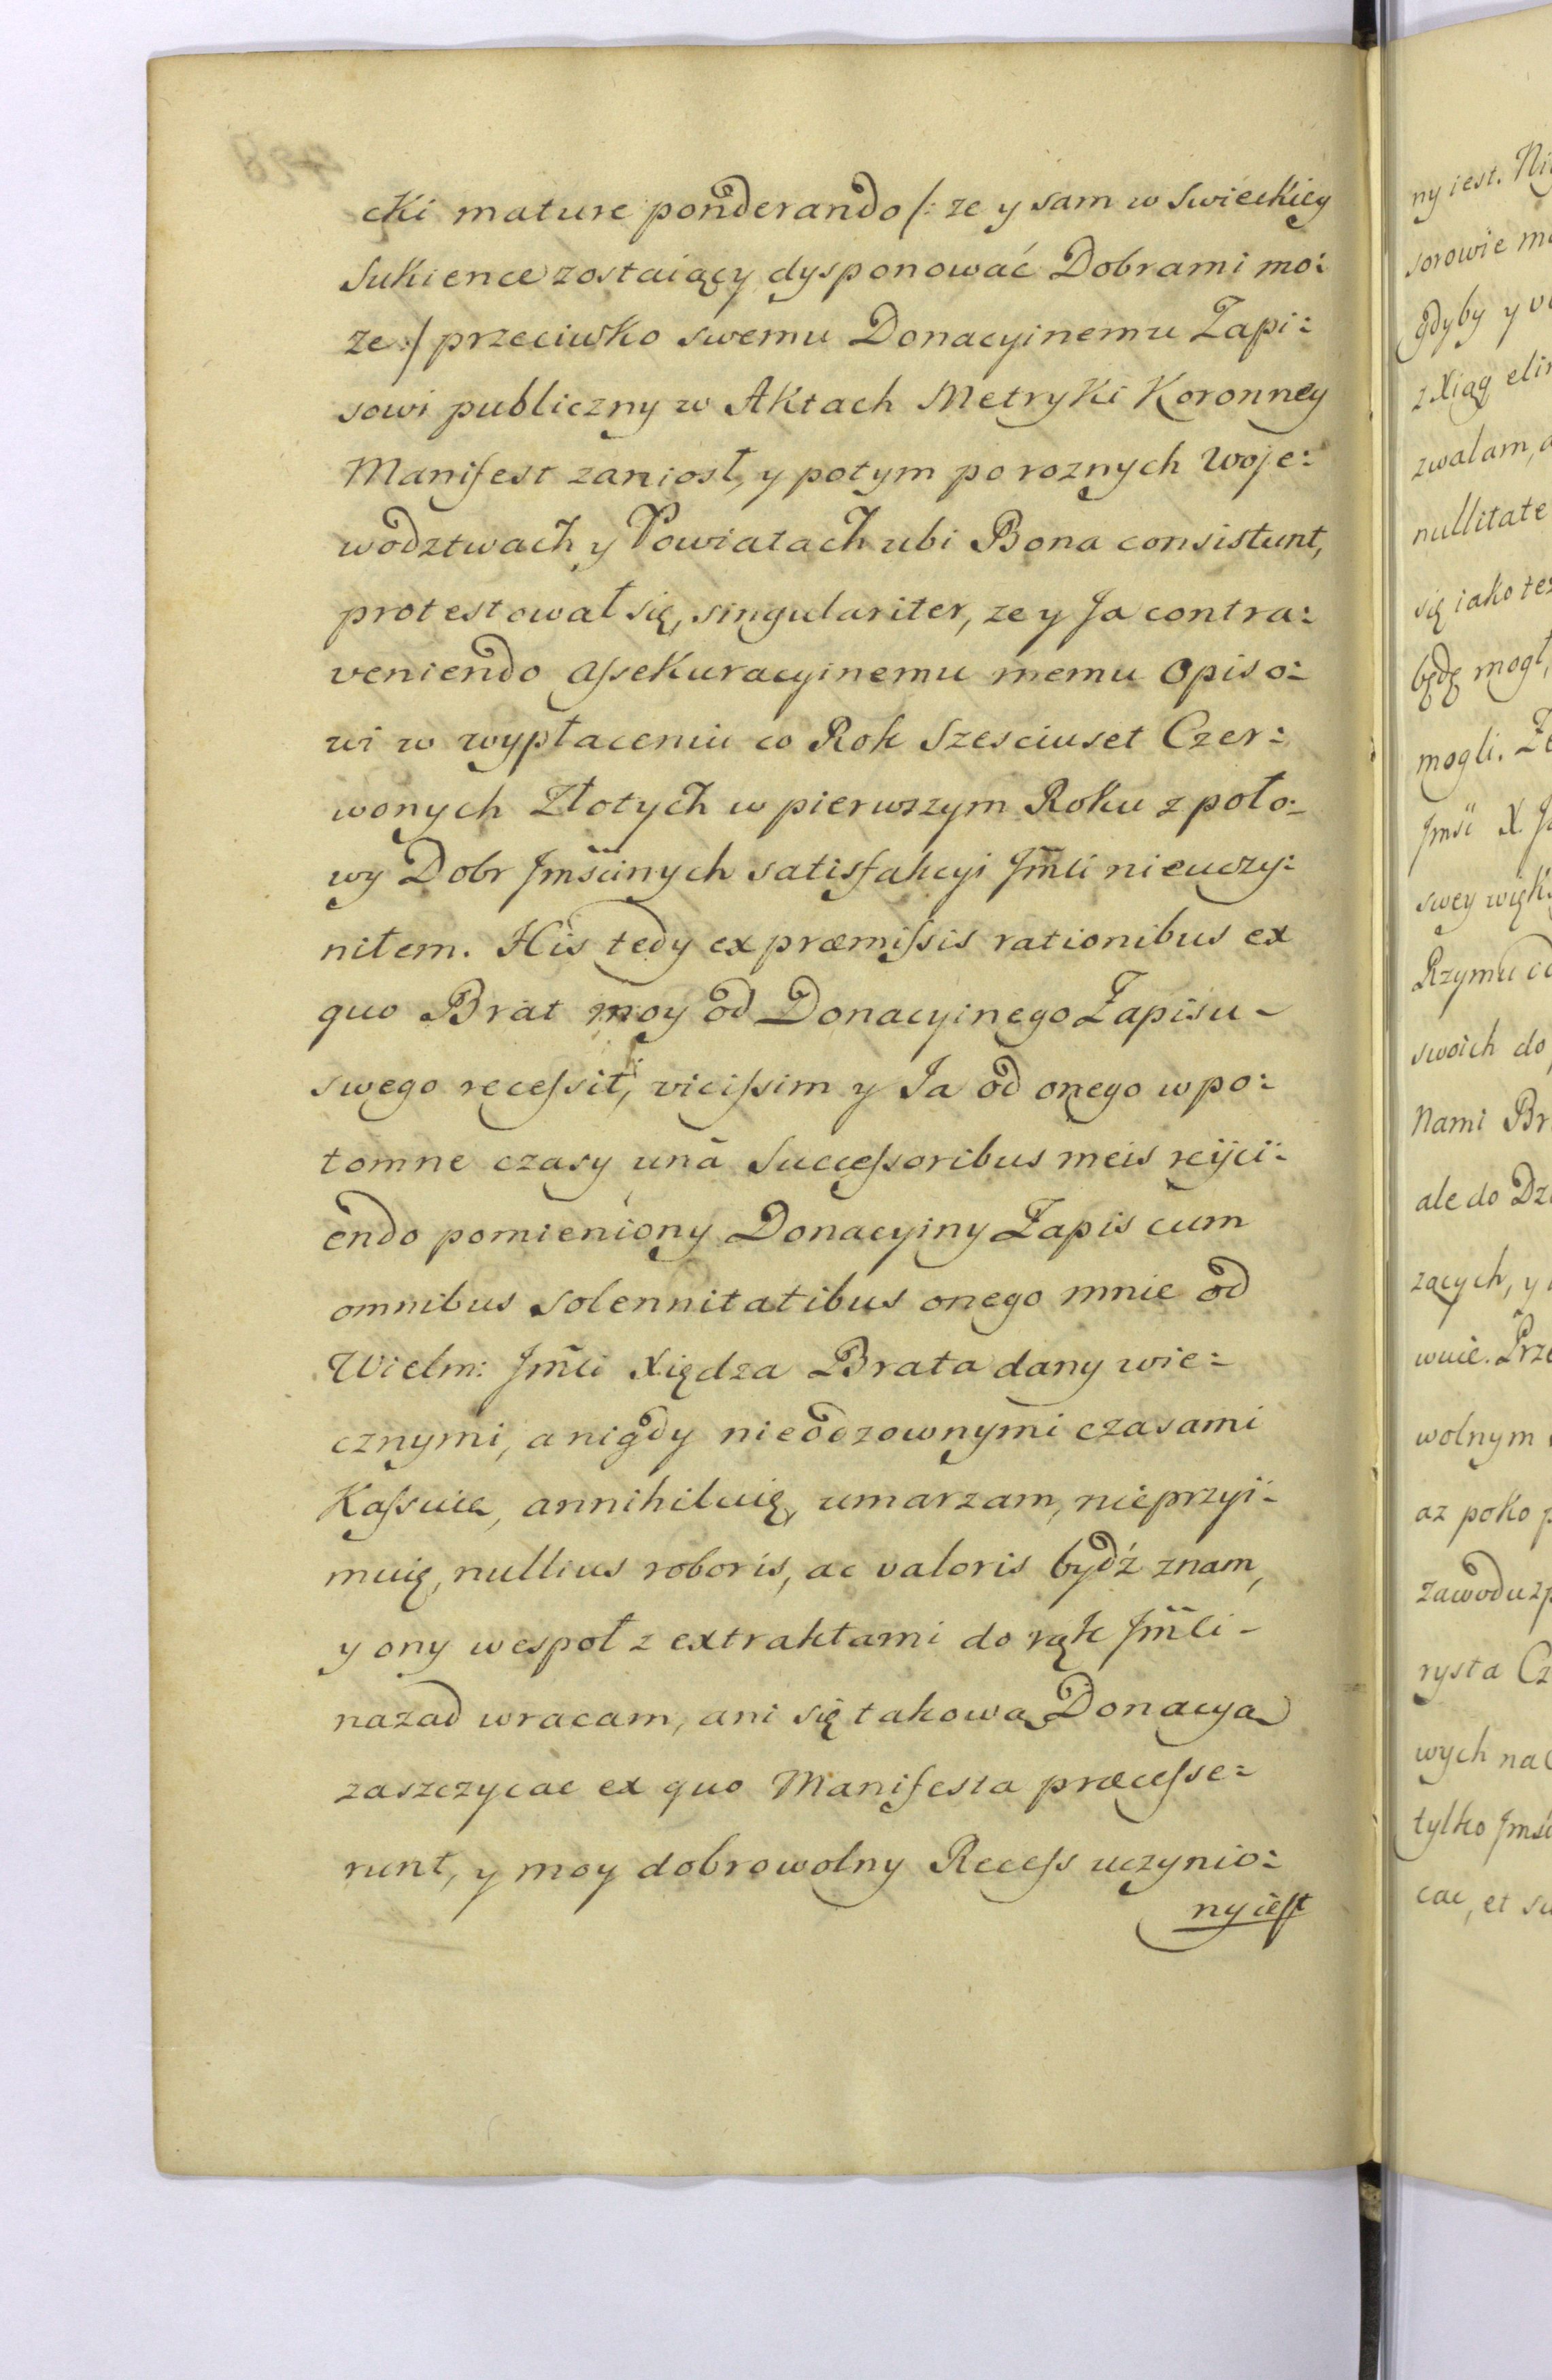 cki mature ponderando /: ze y sam w Swieckiey
Sukience zostaiący dysponować Dobrami mo:
ze :/ przeciwko swemu Donacyinemu Zapi:
sowi publiczny w Aktach Metryki Koronney
Manifest zaniosł, y potym po roznych Woje:
wodztwach y Powiatach ubi Bona consistunt,
protestował się, singulariter, ze y Ja contra:
veniendo Assekuracyinemu memu Opiso:
wi w wypłaceniu co Rok Szesciuset Czer:
wonych Złotych w pierwszym Roku z poło:
wy Dobr Jmścinych satisfakcyi Jmći nieuczy:
niłem. His tedy ex præmissis rationibus ex
quo Brat moy od Donacyinego Zapisu -
swego recessit, vicissim y Ja od onego w po:
tomne czasy unà Successoribus meis reijci:
endo pomieniony Donacyiny Zapis cum
omnibus solennitatibus onego mnie od
Wielm: Jmći Xiędza Brata dany wie:
cznymi, a nigdy nieodzownymi czasami
Kassuię, annihiluię, umarzam, nieprzyi:
muię, nullius roboris, ac valoris bydź znam,
y ony wespoł z extraktami do rąk Jmći -
nazad wracam, ani się takową Donacyą
zaszczycac ex quo Manifesta præcesse:
runt, y moy dobrowolny Recess uczynio:
ny iest
ny iest.
sorowie
gdyby y
z Xiąg
zwalam,
nullitate
się iako
będę mogł,
mogli.
Jmść X
swey
Rzymu
swoich do
Nami
ale do
zących, y
wuie.
wolnym
az poko
zawodu
rysta
wych
tylko
cac, et